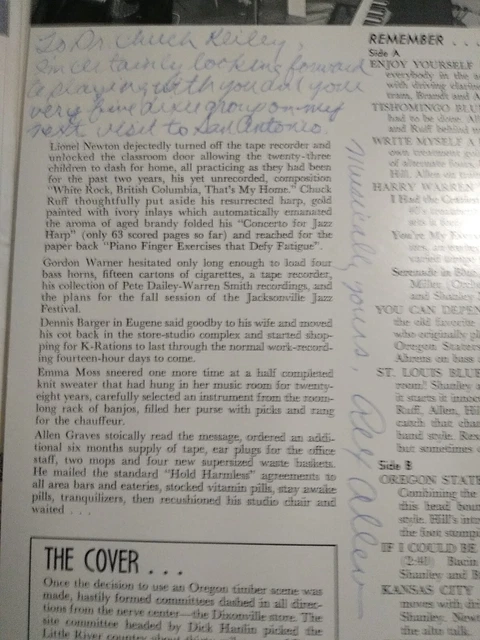 To Dr. Chuck Kelley,
I'm certainly looking forward
to playing with you and your
very fine dixie group on my
next visit to San Antonio.
Musically yours, Rex Allen
Lionel Newton dejectedly turned off the tape recorder and
unlocked the classroom door allowing the twenty-three
children to dash for home, all practicing as they had been
for the past two years, his yet unrecorded, composition
"White Rock, British Columbia, That's My Home." Chuck
Ruff thoughtfully put aside his resurrected harp, gold
painted with ivory inlays which automatically emanated
the aroma of aged brandy folded his "Concerto for Jazz
Harp" (only 63 scored pages so far) and reached for the
paper back "Piano Finger Exercises that Defy Fatigue".
Gordon Warner hesitated only long enough to load four
bass horns, fifteen cartons of cigarettes, a tape recorder,
his collection of Pete Dailey-Warren Smith recordings, and
the plans for the fall session of the Jacksonville Jazz
Festival.
Dennis Barger in Eugene said goodby to his wife and moved
his cot back in the store-studio complex and started shop-
ping for K-Rations to last through the normal work-record-
ing fourteen-hour days to come.
Emma Moss sneered one more time at a half completed
knit sweater that had hung in her music room for twenty-
eight years, carefully selected an instrument from the room-
long rack of banjos, filled her purse with picks and rang
for the chauffeur.
Allen Graves stoically read the message, ordered an addi-
tional six months supply of tape, ear plugs for the office
staff, two mops and four new supersized waste baskets.
He mailed the standard "Hold Harmless" agreements to
all area bars and eateries, stocked vitamin pills, stay awake
pills, tranquilizers, then recushioned his studio chair and
waited . . .
THE COVER . . .
Once the decision to use an Oregon timber scene was
made, hastily formed committees dashed in all direc-
tions from the nerve center—the Dixonville store. The
site committee headed by Dick Hanlin picked the
Little River country about thirty
REMEMBER . . .
Side A
ENJOY YOURSELF
everybody in the
with driving
train, Brandt and
TISHOMINGO BLU
had to be done.
and Ruff behind
WRITE MYSELF A
own treatment
of alternate
Hill, Allen
HARRY WARREN
I Had the
You're My
Serenade in Blu
Miller
and Shanley
YOU CAN DEPEN
the old favorite
who originally
Oregon
Ahrens on bass
ST. LOUIS BLUE
room! Shanley
it starts
Ruff, Allen,
catch that
hand style.
but sometimes
Side B
OREGON STATE
Combining the
this head
style. Hill's
the fine
IF I COULD BE
(2:40)
Shanley and
KANSAS CITY
moves with
Shanley,
the alto